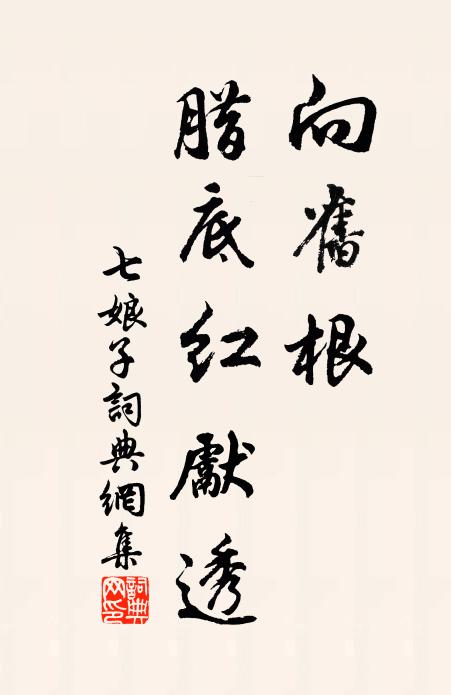 向舊根
腊底紅獻透
七娘子詞典網集
詞典
网印